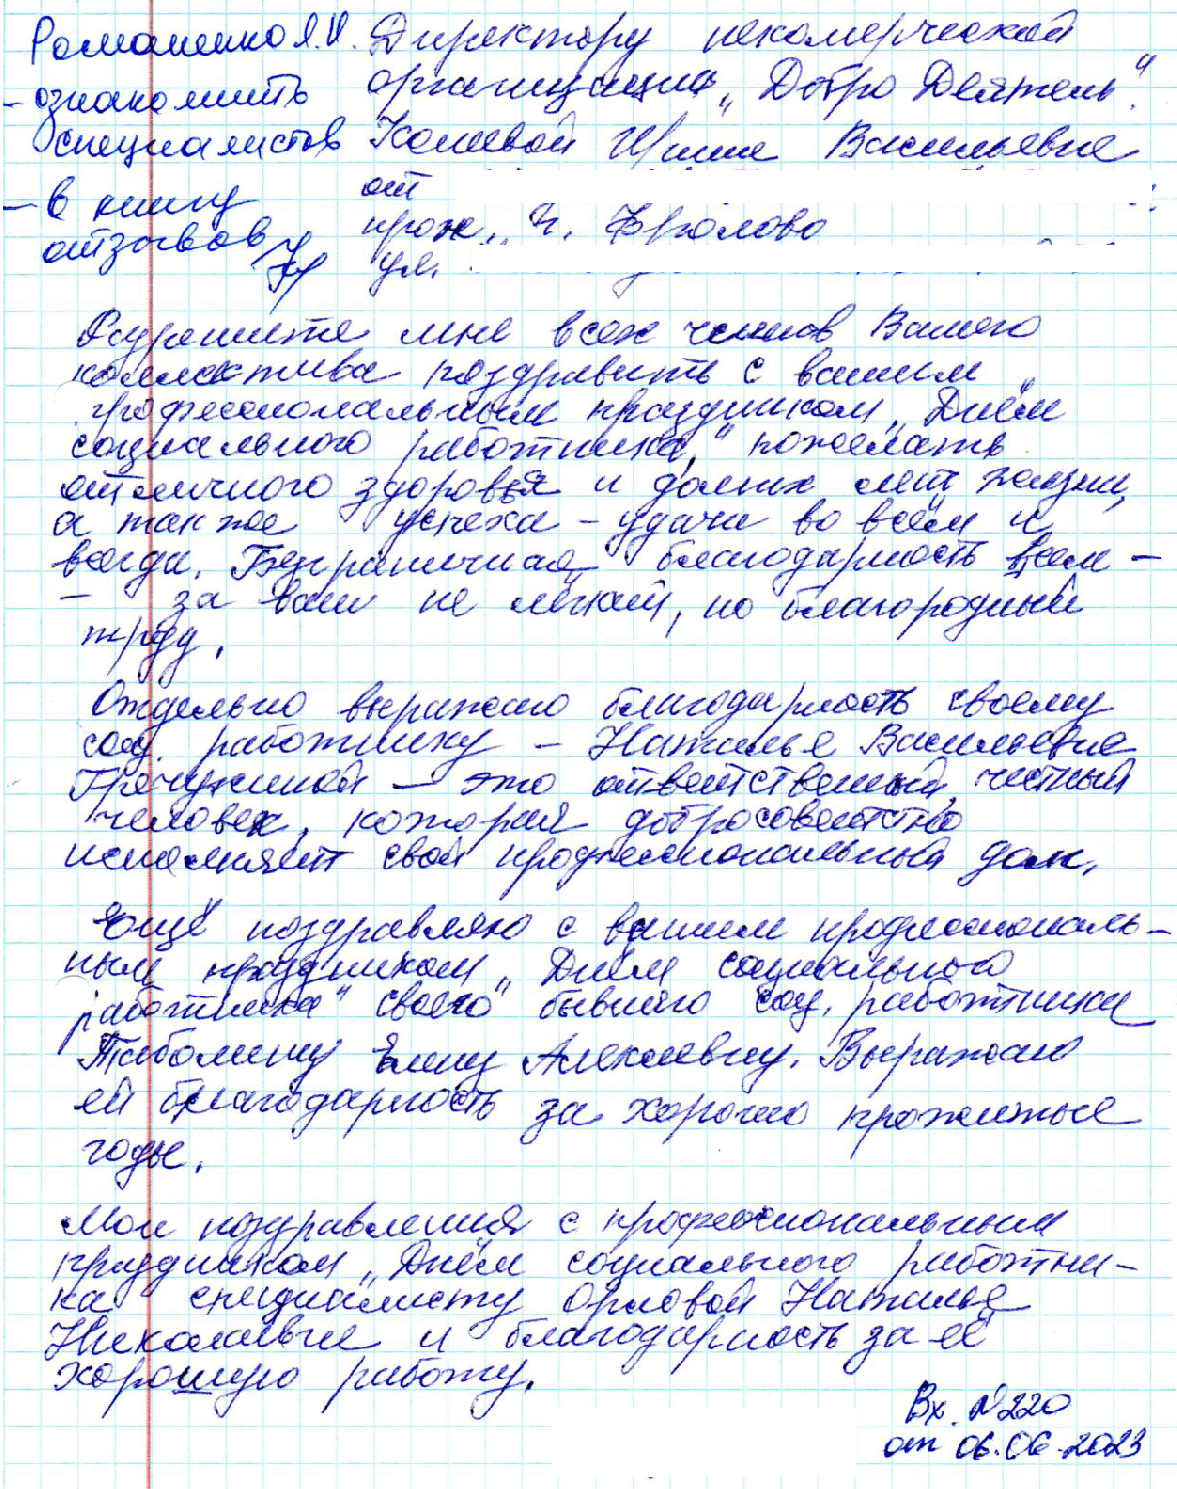 Романенко Я.И.
- ознакомить
специалистов
- в книгу
отзывов
Директору некомерческой
организации „Добро Деятель"
Кошевой Инне Васильевне
от
прож. ч. Фролово
ул.
Разрешите мне всех членов Вашего
коллектива поздравить с вашим
профессиональным праздником „Днём
социального работника," пожелать
отличного здоровья и долгих лет жизни,
а также успеха - удачи во всём и
всегда. Безграничная благодарность всем -
- за ваш не лёгкий, но благородный
труд.
Отдельно выражаю благодарность своему
соц. работнику - Наталье Васильевне
- это ответственный, честный
человек, которая добросовестно
исполняет свой профессиональный долг.
Ещё поздравляю с вашим профессиональ-
ным праздником „Днём социального
работника" своего бывшего соц. работника
Таболину Елену Алексеевну. Выражаю
ей благодарность за хорошо прожитые
годы.
Мои поздравления с профессиональным
праздником „Днём социального работни-
ка специалисту Орловой Наталье
Николаевне и благодарность за её
хорошую работу.
Вх. №220
от 06.06.2023